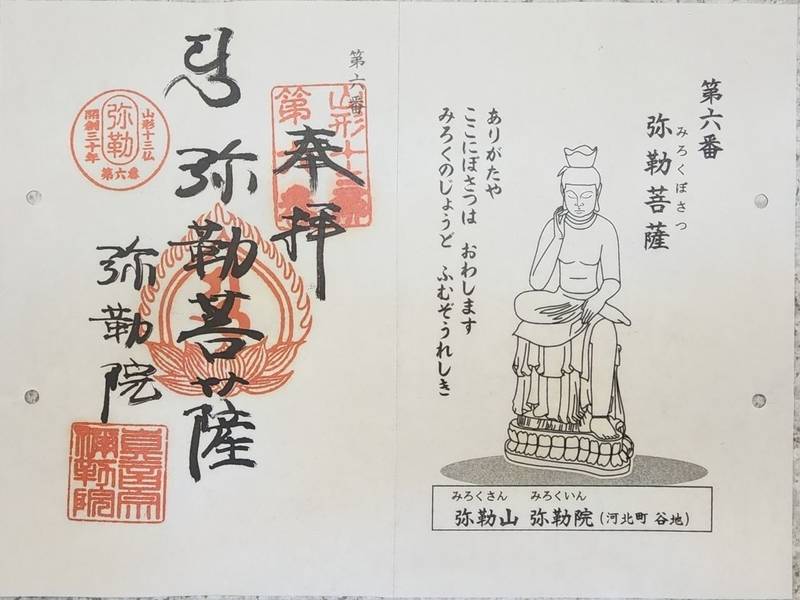 第六番
みろくぼさつ
弥勒菩薩
ありがたや
ここにぼさつは おわします
みろくのじょうど ふむぞうれしき
みろくさん みろくいん
弥勒山 弥勒院 (河北町 谷地)
第六番
奉拝
弥勒菩薩
弥勒院
山形十三仏
弥勒
開創三十年
第六番
山形十三佛
第六番